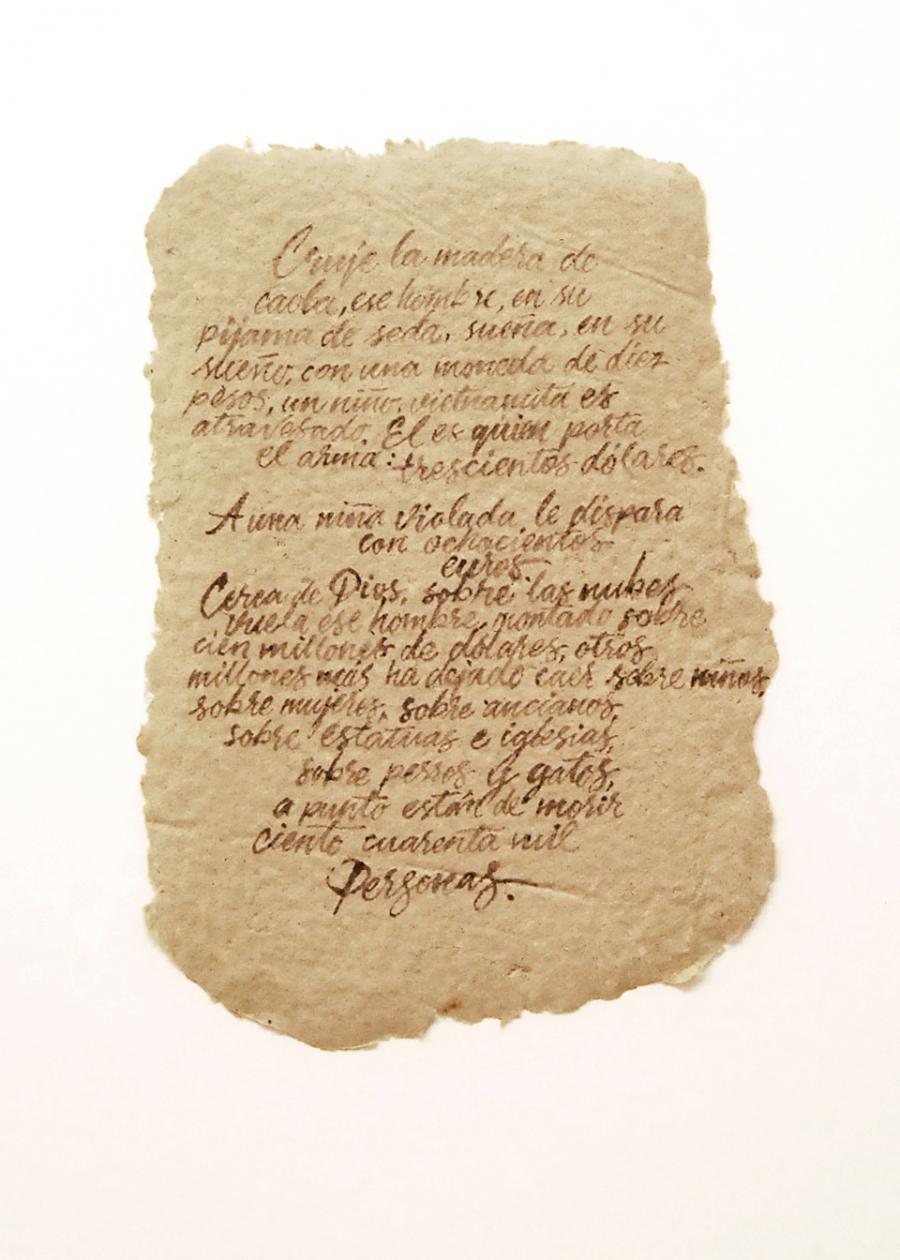 Cruje la madera de
caoba, ese hombre, en su
pijama de seda, sueña, en su
sueño, con una moneda de diez
pesos, un niño vietnamita es
atravesado. El es quien porta
el arma: trescientos dólares.
A una niña violada le dispara
con ochocientos
euros
Cerca de Dios, sobre las nubes
vuela ese hombre montado sobre
cien millones de dólares, otros
millones más ha dejado caer sobre niños,
sobre mujeres, sobre ancianos,
sobre estatuas e iglesias,
sobre perros y gatos,
a punto están de morir
ciento cuarenta mil
Personas.